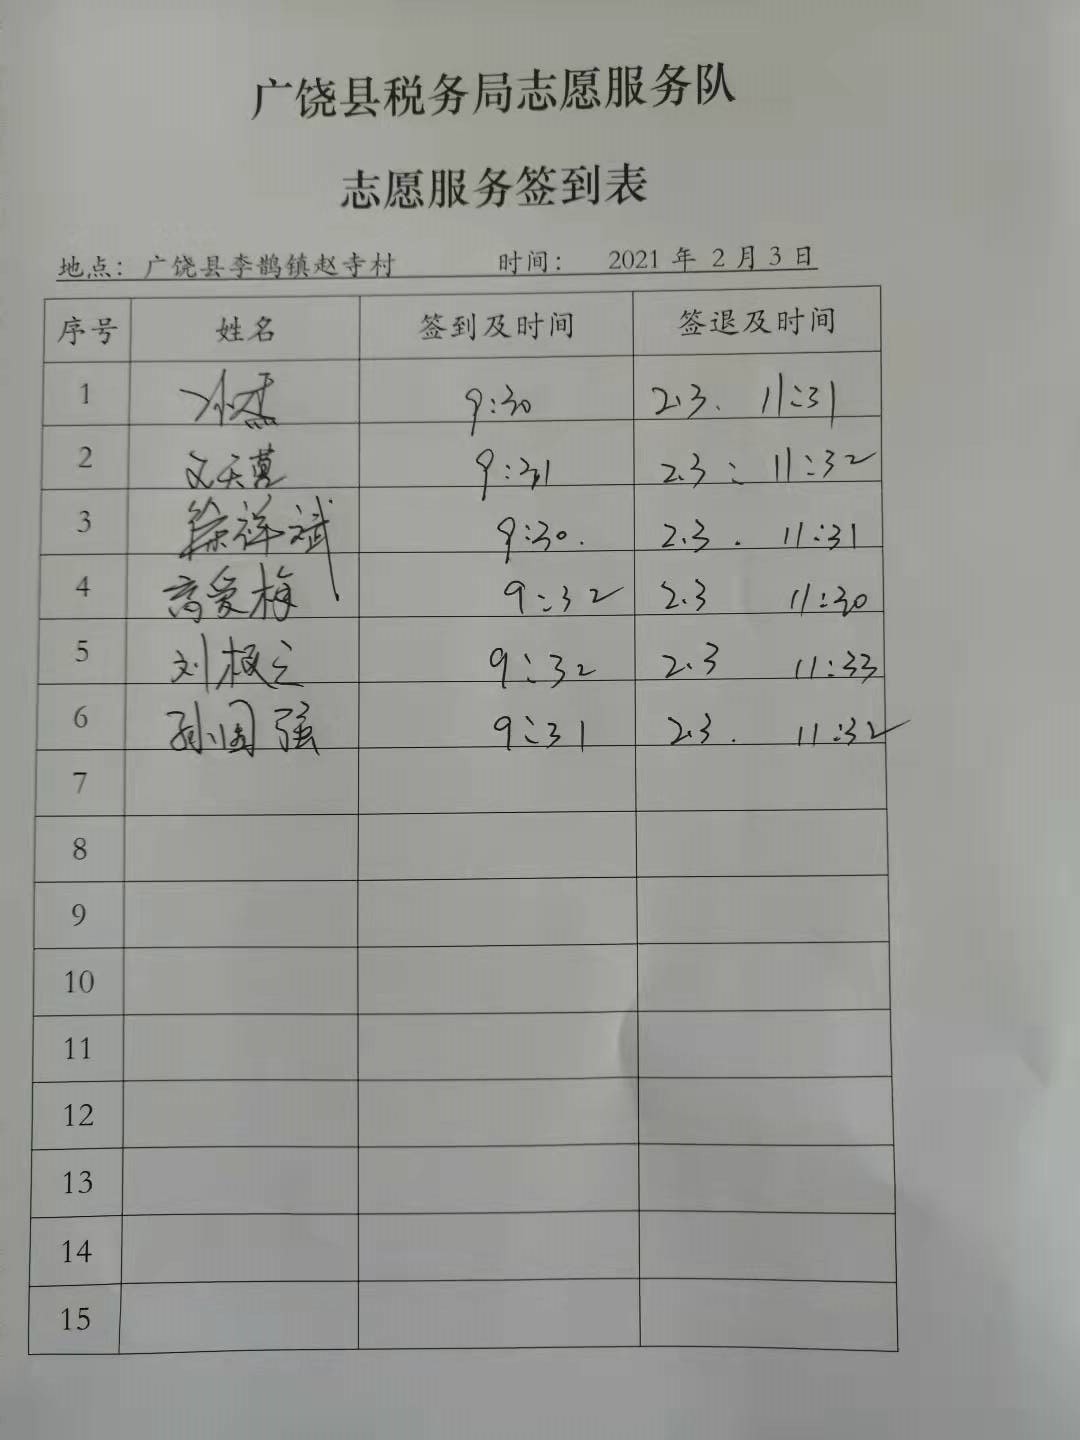 广饶县税务局志愿服务队
志愿服务签到表
地点：广饶县李鹊镇赵寺村 时间： 2021 年 2 月 3 日
序号 姓名 签到及时间 签退及时间
1 9:30 2.3. 11:31
2 9:31 2.3: 11:32
3 徐祥斌 9:30. 2.3. 11:31
4 高爱梅 9:32 2.3 11:30
5 刘 9:32 2.3 11:33
6 孙国强 9:31 2.3. 11:32
7
8
9
10
11
12
13
14
15